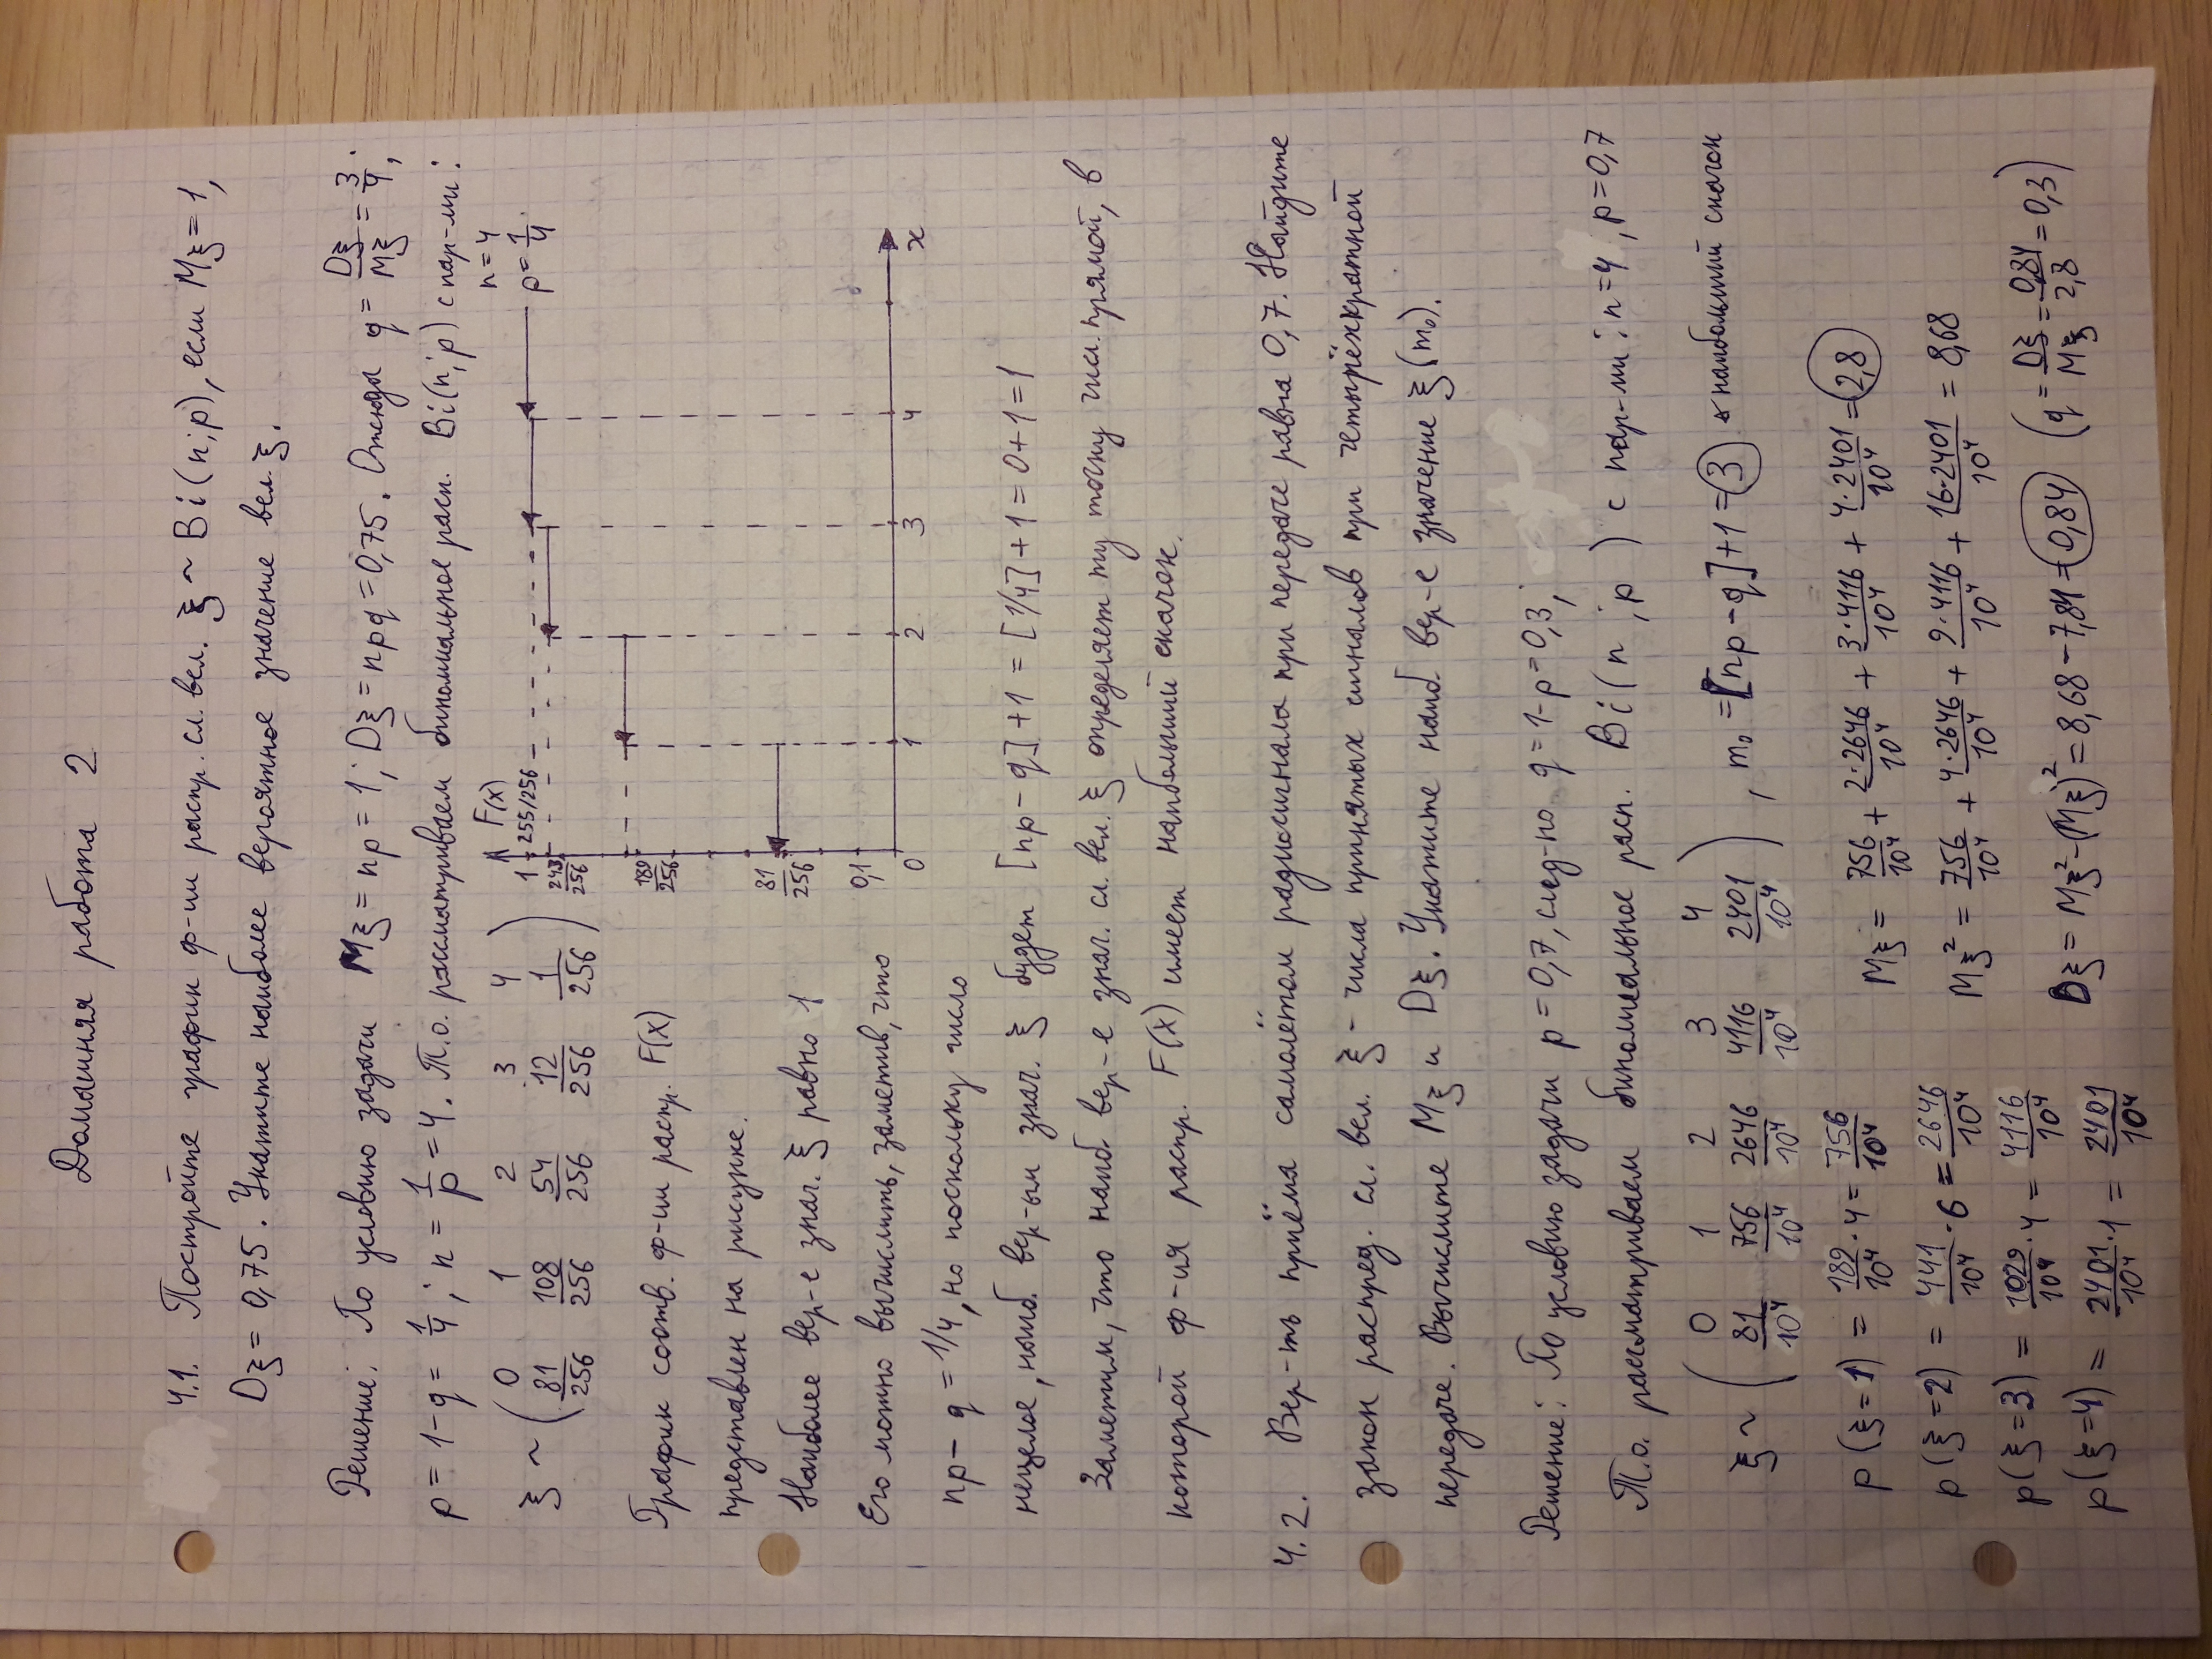 Домашняя работа 2
4.1. Постройте график ф-ии распр. сл. вел. ξ ~ Bi(n;p), если Mξ = 1,
Dξ = 0,75. Укажите наиболее вероятное значение вел. ξ.
Решение: По условию задачи Mξ = np = 1; Dξ = npq = 0,75. Отсюда q = Dξ/Mξ = 3/4;
p = 1-q = 1/4; n = 1/p = 4. Т.о. рассматриваем биномиальное расп. Bi(n;p) с пар-ми:
n = 4
p = 1/4.
ξ ~ ( 0 1 2 3 4
81/256 108/256 54/256 12/256 1/256 )
F(x)
1 255/256
243/256
189/256
81/256
0,1
0 1 2 3 4 x
График соотв. ф-ии распр. F(x)
представлен на рисунке.
Наиболее вер-е знач. ξ равно 1
Его можно вычислить, заметив, что
np - q = 1/4, но поскольку число
нецелое, наиб. вер-ым знач. ξ будет [np - q] + 1 = [1/4] + 1 = 0 + 1 = 1
Заметим, что наиб. вер-е знач. сл. вел. ξ определяет ту точку числ. прямой, в
которой ф-ия распр. F(x) имеет наибольший скачок.
4.2. Вер-ть приёма самолётом радиосигнала при передаче равна 0,7. Найдите
закон распред. сл. вел. ξ - числа принятых сигналов при четырёхкратной
передаче. Вычислите Mξ и Dξ. Укажите наиб. вер-е значение ξ (m₀).
Решение: По условию задачи p = 0,7, след-но q = 1-p = 0,3;
Т.о. рассматриваем биномиальное расп. Bi(n ; p) с пар-ми: n = 4, p = 0,7
ξ ~ ( 0 1 2 3 4
81/10⁴ 756/10⁴ 2646/10⁴ 4116/10⁴ 2401/10⁴ ) , m₀ = [np - q] + 1 = 3 наибольший скачок
p(ξ = 1) = 189/10⁴ · 4 = 756/10⁴
p(ξ = 2) = 441/10⁴ · 6 = 2646/10⁴
p(ξ = 3) = 1029/10⁴ · 4 = 4116/10⁴
p(ξ = 4) = 2401/10⁴ · 1 = 2401/10⁴
Mξ = 756/10⁴ + 2·2646/10⁴ + 3·4116/10⁴ + 4·2401/10⁴ = 2,8
Mξ² = 756/10⁴ + 4·2646/10⁴ + 9·4116/10⁴ + 16·2401/10⁴ = 8,68
Dξ = Mξ² - (Mξ)² = 8,68 - 7,84 = 0,84 (q = Dξ/Mξ = 0,84/2,8 = 0,3)